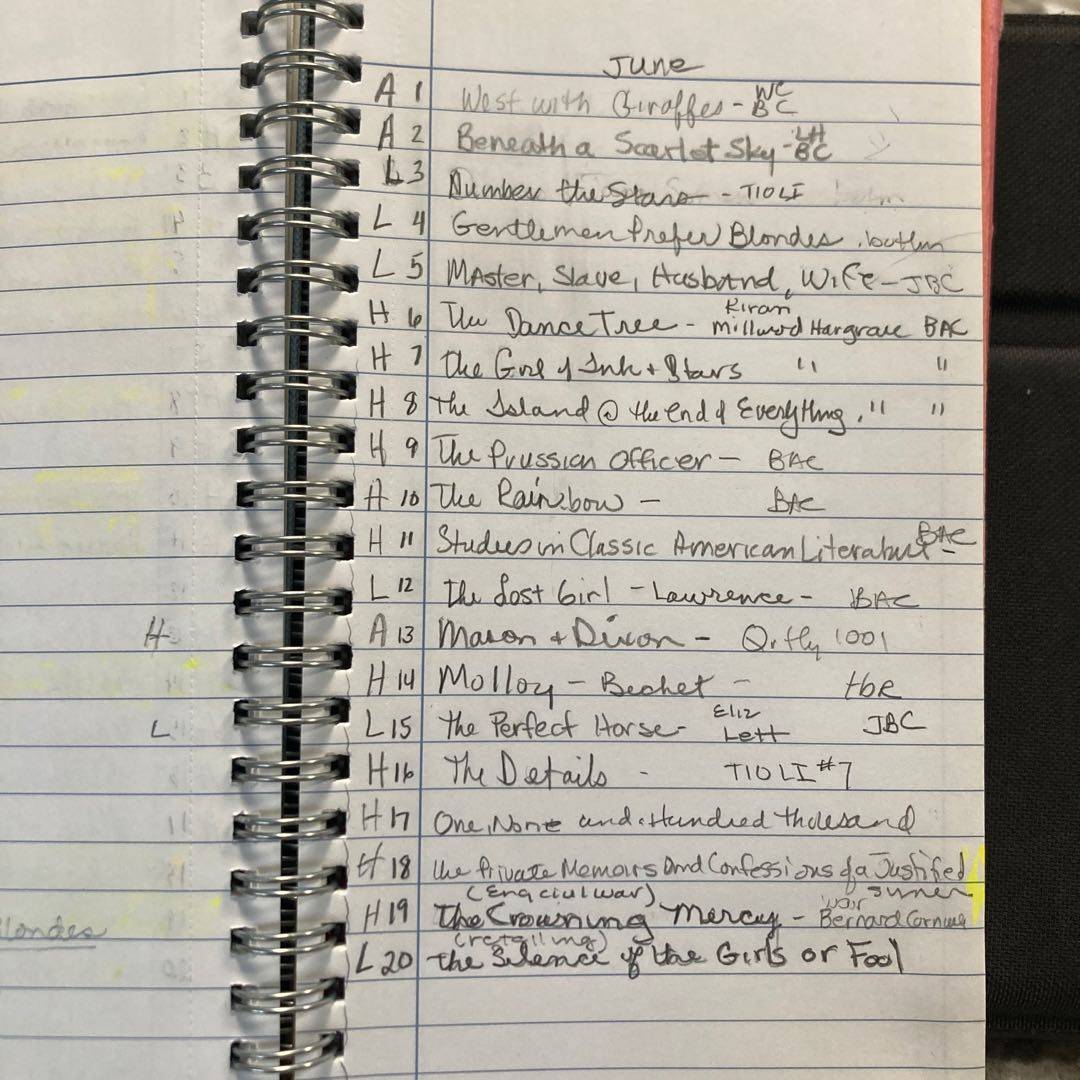 June
A 1 West with Giraffes - WC BC
A 2 Beneath a Scarlet Sky - LH BC
L 3 Number the Stars - TIOLI
L 4 Gentlemen Prefer Blondes
L 5 Master, Slave, Husband, Wife - JBC
H 6 The Dance Tree - Kiran Millwood Hargrave BAC
H 7 The Girl of Ink + Stars " "
H 8 The Island @ the end of Everything. " "
H 9 The Prussian Officer - BAC
A 10 The Rainbow - BAC
H 11 Studies in Classic American Literature - BAC
L 12 The Lost Girl - Lawrence - BAC
H
A 13 Mason + Dixon - Qrtly 1001
H 14 Molloy - Becket - tbr
L
L 15 The Perfect Horse - Eliz Lett JBC
H 16 The Details - TIOLI #7
H 17 One, None and a Hundred thousand
H 18 The Private Memoirs and Confessions of a Justified
sinner
(Eng civil war)
H 19 The Crowning Mercy - war Bernard Cornwell
londes
(retelling)
L 20 The Silence of the Girls or Fool